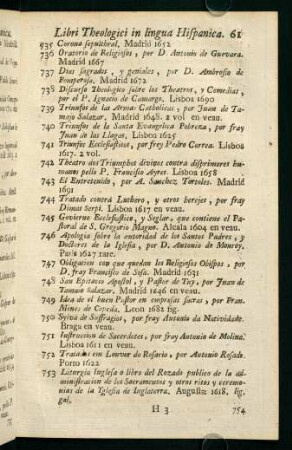 Libri Theologici in lingua Hispanica. 61
935 Corona sepulthral, Madrid 1652
736 Oratorio de Religiosos, por D. Antonio de Guevara.
Madrid 1667
737 Dias sagrados, y geniales, por D. Ambrosio de
Madrid 1672
738 Discurso Theologico sobre los Theatros, y Comedias,
por el P. Ignacio de Camargo. Lisboa 1690
739 Triunfos de las Armas Catholicas, por Juan de Ta-
majo Salazar. Madrid 1648. 2 vol en veau.
740 Triunfo de la Santa Evangelica Pobreza, por fray
Juan de las Llagas, Lisboa 1625
741 Triunfos Ecclesiasticos, por fray Pedro Correa. Lisboa
1617. 2 vol.
742 Theatro des Triumphos divinos contra disprimeres hu-
manos pello P. Francisco Ayres. Lisboa 1658
743 El Entretenido, por A. Sanchez Tortoles. Madrid
1691
744 Tratado contra Luthero, y otros herejes, por fray
Dimas Serpi. Lisboa 1617 en veau.
745 Govierno Ecclesiastico, y Seglar, que contiene el Pa-
storal de S. Gregorio Mayor. Alcala 1604 en veau.
746 Apologia sobre la autoridad de los Santos Padres, y
Doctores de la Iglesia, por D. Antonio de Moncey.
Paris 1627 rare.
747 Obligacion con que queden los Religiosos Obispos, por
D. fray Francisco de Sosa. Madrid 1631
748 San Epitacio Apostol, y Pastor de Tuy, por Juan de
Tamaio Salazar. Madrid 1646 en veau.
749 Idea de el buen Pastor en empresas sacras, por Fran-
Nunes de Cepeda. Leon 1682 fig.
750 Sylva de Suffragios, por fray Antonio da Natividade.
Braga en veau.
751 Instruccion de Sacerdotes, por fray Antonio de Molina.
Lisboa 1611 en veau.
752 em Louvor do Rosario, por Antonio Rosado.
Porto 1622
753 Liturgia Inglesa o libro del Rezado publico de la ad-
ministracion de los Sacramentos y otros ritos y ceremo-
nias de la Yglesia de Inglaterra. Augustæ 1618, fig.
gal,
H 3 754